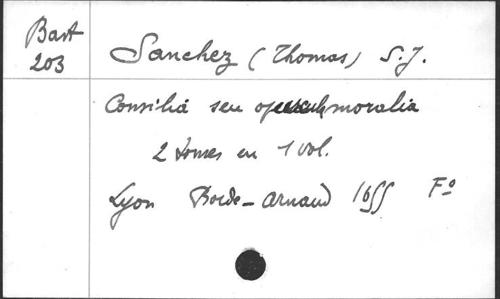 Bart
203
Sanchez (Thomas) S.J.
Consilia seu opuscula moralia
2 tomes en 1 vol.
Lyon Borde-Arnaud 1655 Fº